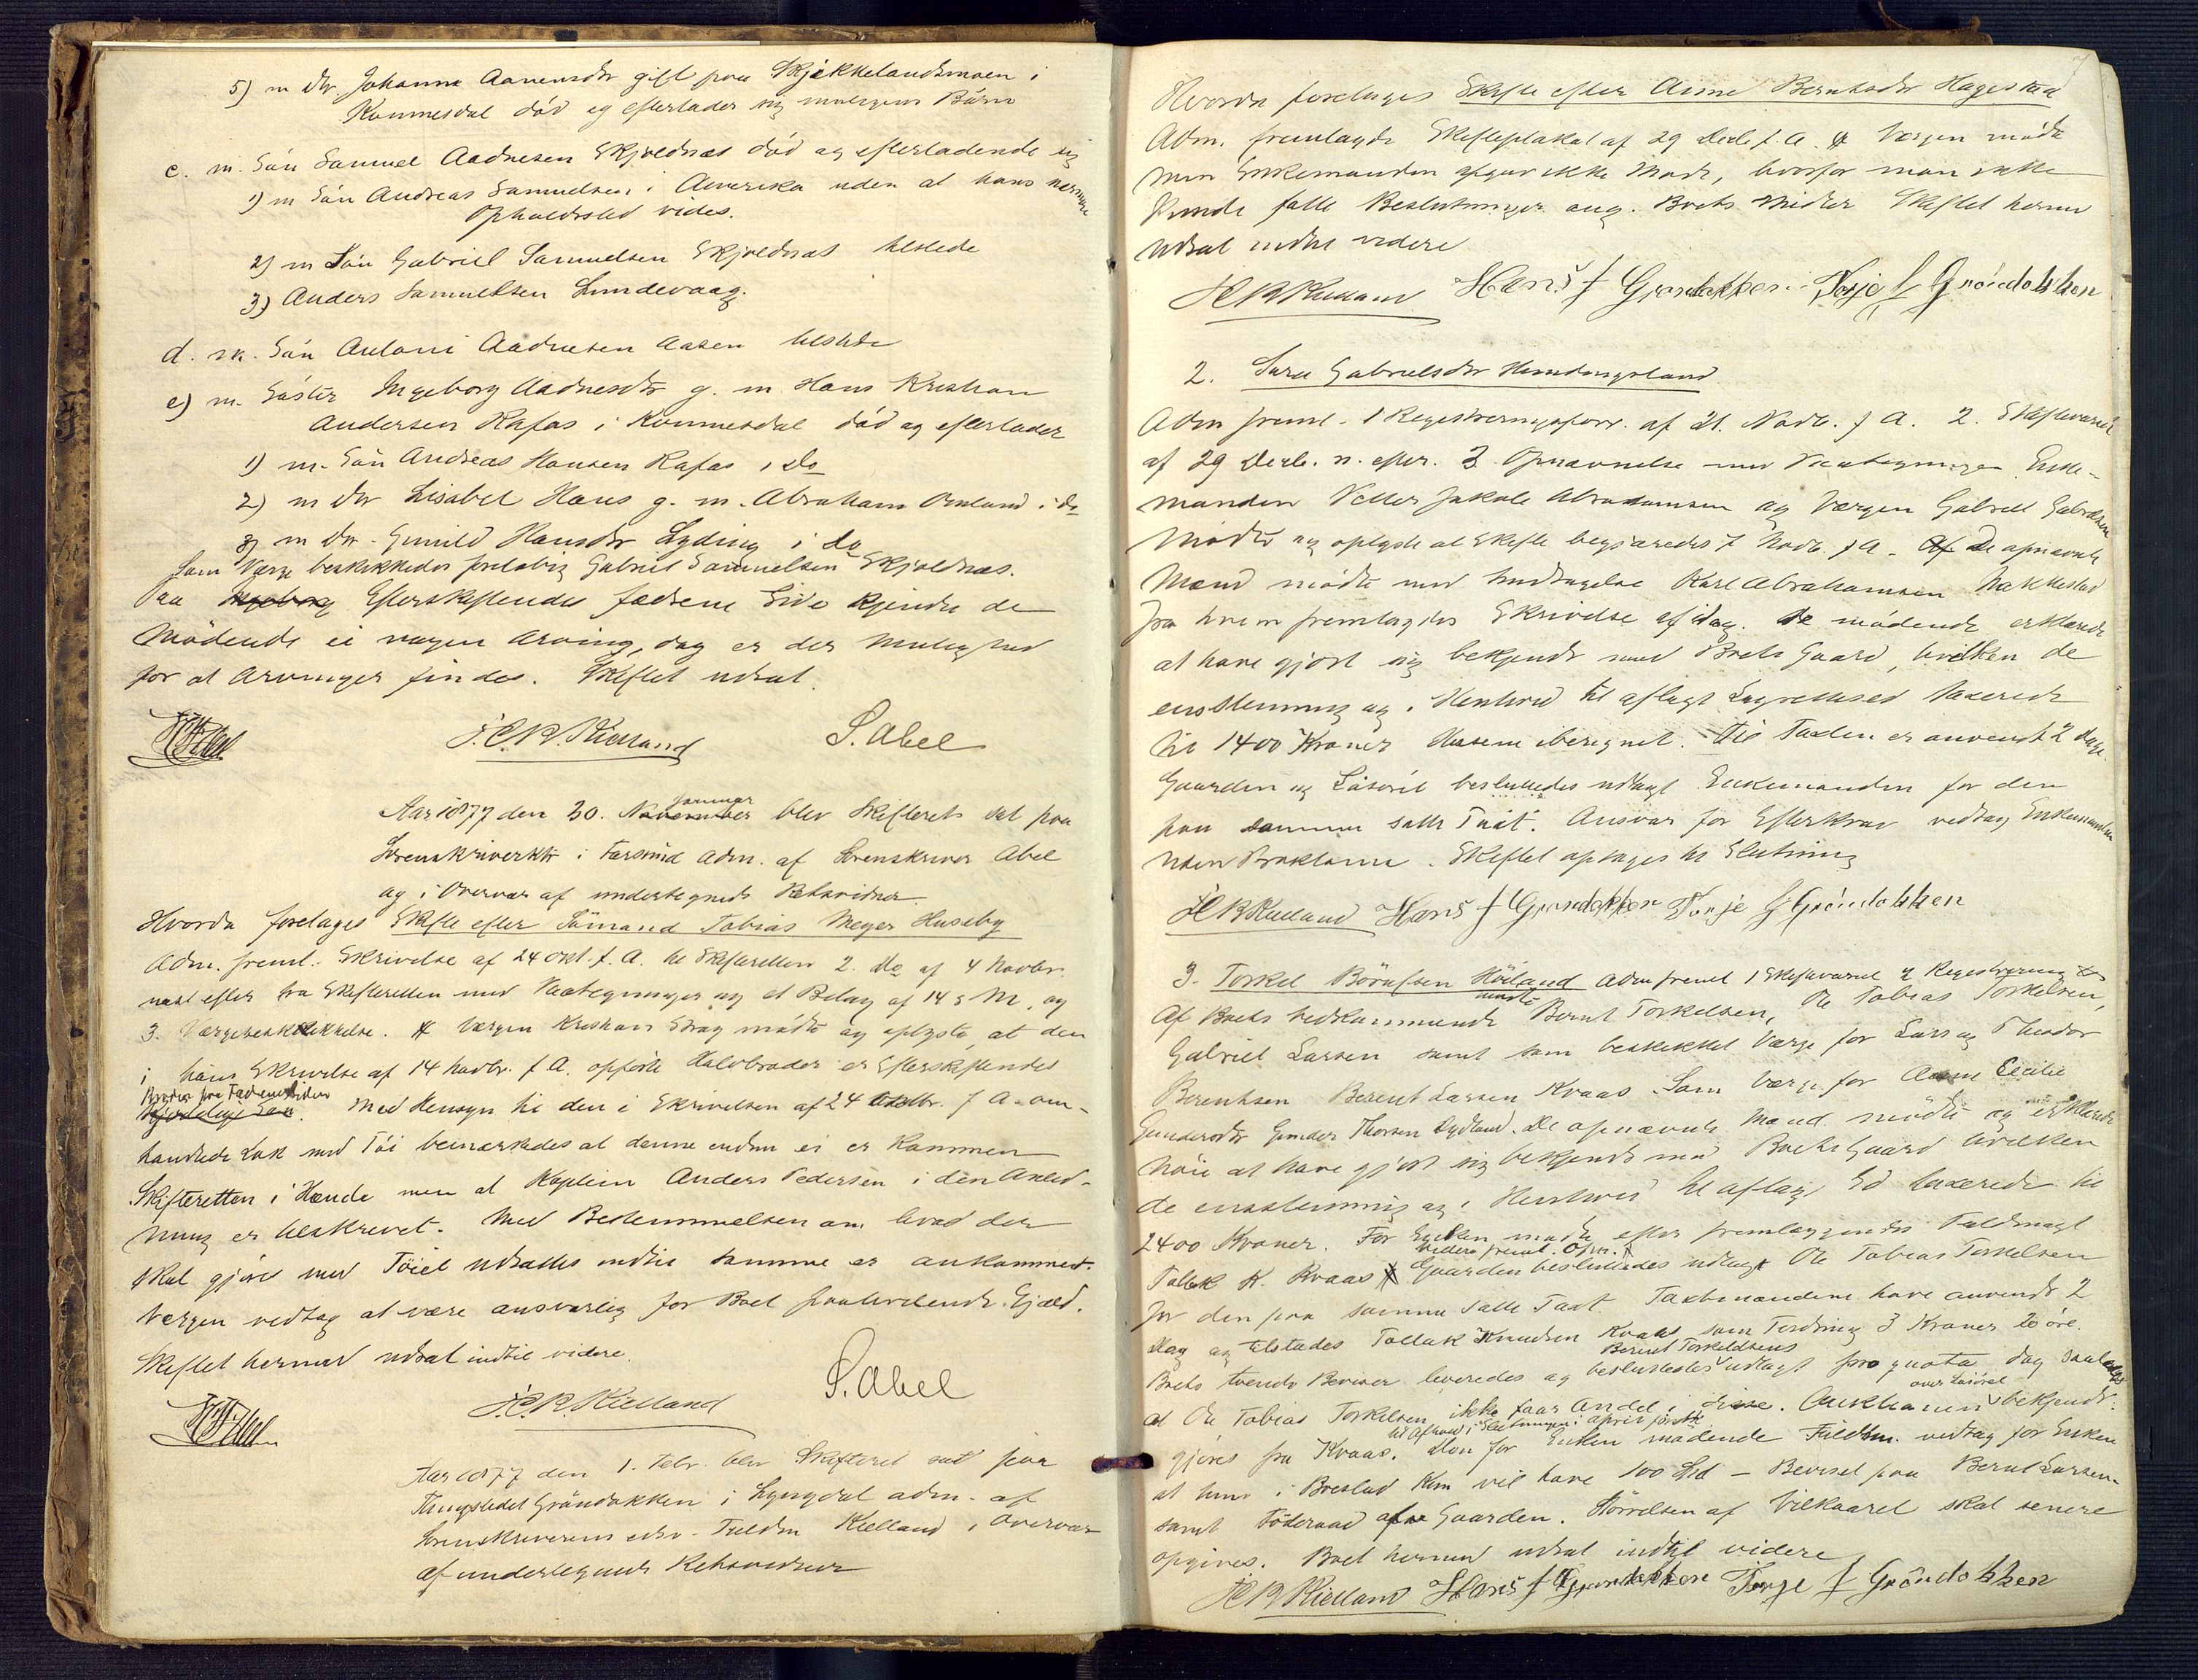 5) m Dtr. Johanne Aanensdtr gift paa Skjekkelandsmoen i
Konnesdal död og efterlader sig Börn
c. m. Sön Samuel Aadnesen Skjoldnæs död og efterladende sig
1) m Sön Andreas Samuelsen i Amerika uden at hans nermere
Opholdsted vides.
2) m Sön Gabriel Samuelsen Skjoldnæs tilstede
3) Anders Samuelsen Lundevaag.
d. m. Sön Antoni Aadnesen Aasen tilstede
e) m. Söster Ingeborg Aadnesdtr g. m Hans Kristian
Andersen Rafas i Konnesdal död og efterlader
1) m. Sön Andreas Hansen Rafas i Do
2) m Dtr Lisabet Hans g. m. Abraham Omland i do
3) m Dtr. Gunild Hansdtr Lyding i do
Som Værge beskikkedes foreløbig Gabriel Samuelsen Skjoldnæs.
Paa Ingeborg Efterskiftendes fædrene Side kjendte de
Mödende ei nogen Arving, dog er der Mulighed
for at Arvinger findes. Skiftet udsat.
J.C.R. Kielland S. Abel
Aar 1877 den 30. November Januar blev Skifteret sat paa
Sorenskriverktr i Farsund adm. af Sorenskriver Abel
og i Overvær af undertegnede Retsvidner.
Hvorda foretages Skifte efter Sömand Tobias Meyer Huseby
Adm. freml. Skrivelse af 24 Okt. f. A. til Skifteretten 2. Do af 4 Novbr.
næst efter fra Skifteretten med Paategninger og et Belöb af 14 5 M. og
3. Værgebeskikkelse. Værgen Kristian Skrag mödte og oplyste, at den
i hans Skrivelse af 14 Novbr. f. A. opförte Halvbroder er Efterskiftendes
Broder fra Faderens Siden. Med Hensyn til den i Skrivelsen af 24 Oktbr. f A. om-
handlede Sæk med Töi bemærkedes at denne endnu ei er kommen
Skifteretten i Hænde men at Kaptein Anders Pedersen i den Anled-
ning er tilskrevet. Med Bestemmelsen om hvad der
skal gjöres med Töiet udsattes indtil samme er ankommet.
Værgen vedtog at være ansvarlig for Boet paahvilende Gjæld.
Skiftet hermed udsat indtil videre.
J.C.R. Kielland S. Abel
Aar 1877 den 1. Febr. blev Skifteret sat paa
Thingstedet Gröndokken i Lyngdal adm. af
Sorenskriverens edsv. Fuldm Kielland i Overvær
af undertegnede Retsvidner
Hvorda foretages Skifte efter Anne Berntsdtr Hagestad
Adm. fremlagde Skifteplakat af 29 Decbr f. A. Værgen mödte
men Enkemanden afgav ikke Möde, hvorfor man ikke
kunde fatte Beslutninger ang. Boets Midler Skiftet hermed
udsat indtil videre
J C R Kielland Hans J Gröndokken Torje J Gröndokken
2. Sara Gabrielsdtr Hunsdingsland
Adm freml. 1 Registreringsforr. af 21. Novb. f A. 2. Skiftevarsel
af 29 Decb. n. efter. 3 Opnævnelse med Paategninger Enke-
manden Vetter Jakob Abrahamsen og Værgen Gabriel Gabrielsen
mödte og oplyste at Skifte begjæredes 7 Novb. f A. De opnævnte
Mænd mödte med Undtagelse Karl Abrahamsen Nakkestad
fra hvem fremlagdes Skrivelse af idag. De mödende erklærede
at have gjort sig bekjendt med Boets Gaard, hvilken de
enstemmig og i Henhold til aflagt Lagrettesed taxerede
til 1400 Kroner Husene iberegnet. Til Taxten er anvendt 2 Dage.
Gaarden og Lösöret besluttedes udlagt Enkemanden for den
paa samme satte Taxt. Ansvar for Efterkrav vedtog Enkemanden
uden Proklama. Skiftet optages til Slutning
J C R Kielland Hans J Gröndokken Torje J Gröndokken
3. Torkel Börufsen Höiland Adm freml 1 Skiftevarsel 2 Registrering
Af Boets vedkommende mödte Bernt Torkelsen, Ole Tobias Torkelsen,
Gabriel Larsen samt som beskikket Værge for Lars og Theodor
Berentsen Berent Larsen Kvaas. Som Værge for Anne Cecilie
Gundersdtr Gunder Thorsen Lydland. De opnævnte Mænd mödte og erklærede
Nöie at have gjort sig bekjendt med Boets Gaard hvilken
de enstemmig og i Henhold til aflagt Ed taxerede til
2400 Kroner. For Enken mödte efter fremlæggende Fuldmagt
Tallak K. Kvaas videre freml. Opn. Gaarden besluttedes udlagt Ole Tobias Torkelsen
for den paa samme satte Taxt. Taxtmændene have anvendt 2
Dag og tilstedes Tallak Knudsen Kvaas som Fordring 3 Kroner 20 öre.
Boets tvende Beviser leveredes og besluttedes Berent Torkeldsens udlagt pro quota dog saaledes
at Ole Tobias Torkelsen ikke faar Andel i disse. Auktionen over Lösöret bekjendt-
gjöres fra Kvaas. Den for Enken mödende Fuldm. vedtog for Enken
at hun i Boslod kun vil have 100 Spd - Beviset paa Bernt Larsen
samt Föderaad af Gaarden. Störrelsen af Vilkaaret skal senere
opgives. Boet hermed udsat indtil videre
J C R Kielland Hans J Gröndokken Torje J Gröndokken